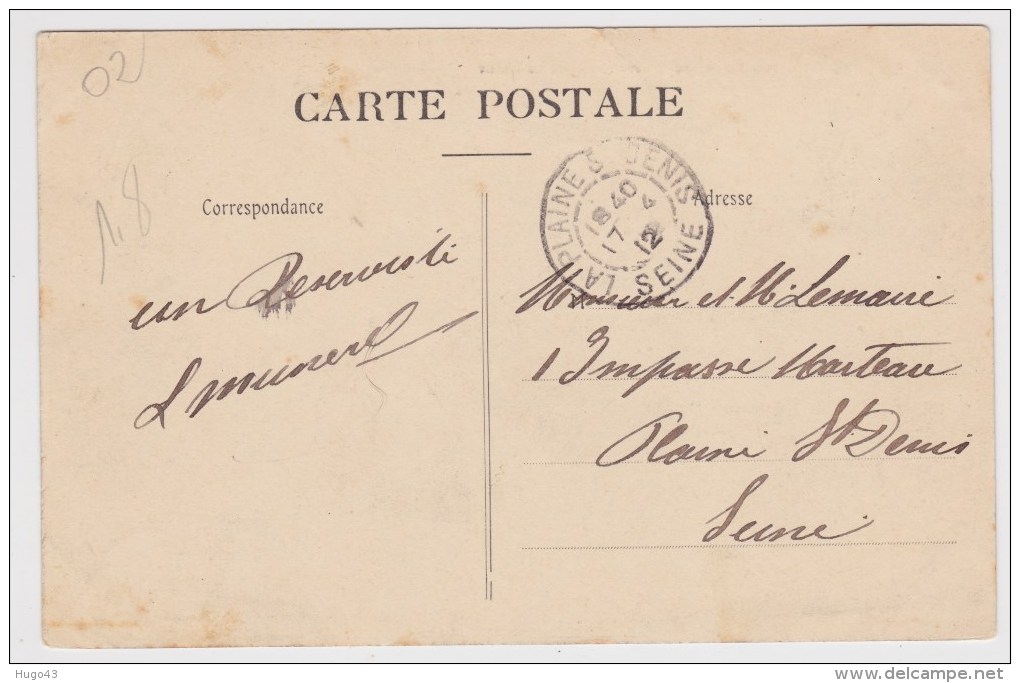 02
CARTE POSTALE
1.8
Correspondance
un Reserviste
L
LA PLAINE ST DENIS
18 40
17 4
12
SEINE
Adresse
Monsieur et M Lemaire
1 Impasse Marteau
Plaine St Denis
Seine
Hugo43
www.delcampe.net